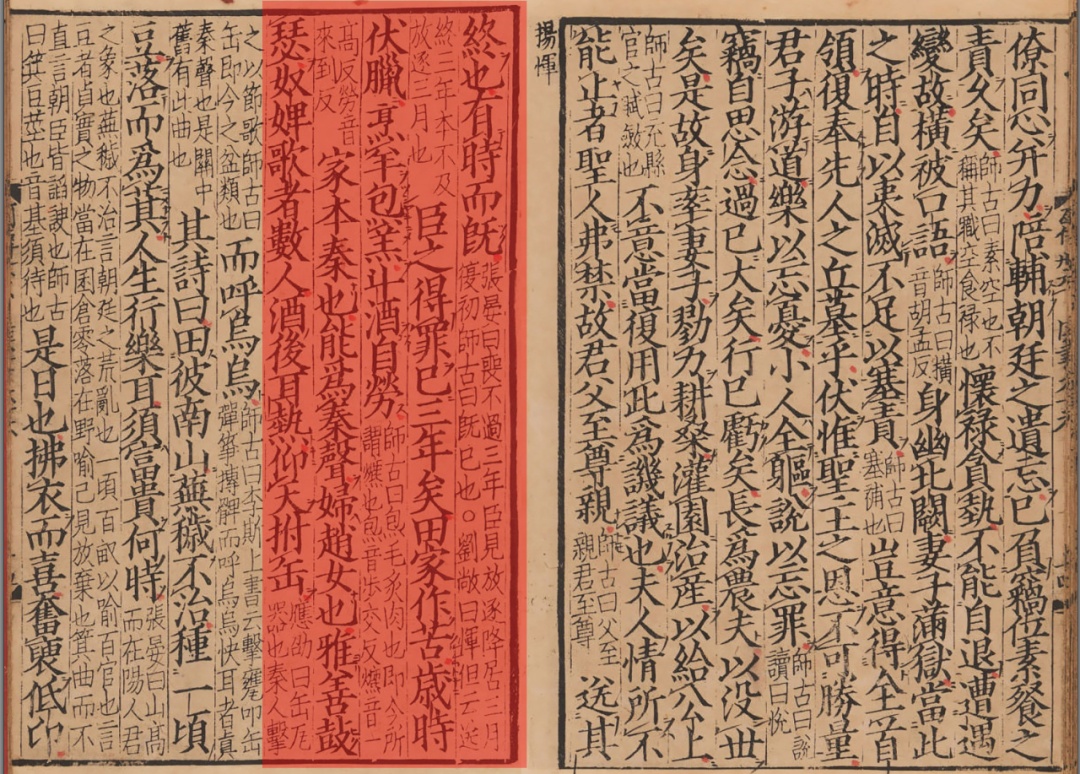 僚同心并力陪輔朝廷之遺忘已負竊位素餐之
責久矣師古曰素空也不稱其職空食祿也懷祿貪埶不能自退遭遇
變故橫被口語師古曰橫音胡孟反身幽北闕妻子滿獄當此
之時自以夷滅不足以塞責師古曰塞補也豈意得全首
領復奉先人之丘墓乎伏惟聖主之恩不可勝量
君子游道樂以忘憂小人全軀說以忘罪師古曰說讀曰悅
竊自思念過已大矣行已虧矣長爲農夫以没世
矣是故身率妻子勠力耕桒灌園治産以給公上
師古曰充縣官之賦斂也不意當復用此爲譏議也夫人情所不
能止者聖人弗禁故君父至尊親師古曰父至親君至尊送其
楊惲
終也有時而旣張晏曰喪不過三年臣見放逐降居三月復初師古曰旣已也○劉敞曰惲但云送
終三年本不及放逐三月也臣之得罪已三年矣田家作苦歲時
伏臘烹羊炰羔斗酒自勞師古曰炰毛炙肉也即今所謂爊也炰音步交反爊音一
高反勞音來到反家本秦也能爲秦聲婦趙女也雅善鼓
瑟奴婢歌者數人酒後耳熱仰天拊缶應劭曰缶瓦器也秦人擊
之以節歌師古曰缶即今之盆類也而呼烏烏師古曰李斯上書云擊甕叩缶彈箏搏髀而呼烏烏快耳者眞
秦聲也是關中舊有此曲也其詩曰田彼南山蕪穢不治種一頃
豆落而爲萁人生行樂耳須富貴何時張晏曰山高而在陽人君
之象也蕪穢不治言朝廷之荒亂也一頃百畝以喻百官也言豆者貞實之物當在囷倉零落在野喻己見放棄也萁曲而不
直言朝臣皆諂諛也師古曰萁豆莖也音基須待也是日也拂衣而喜奮褎低卬